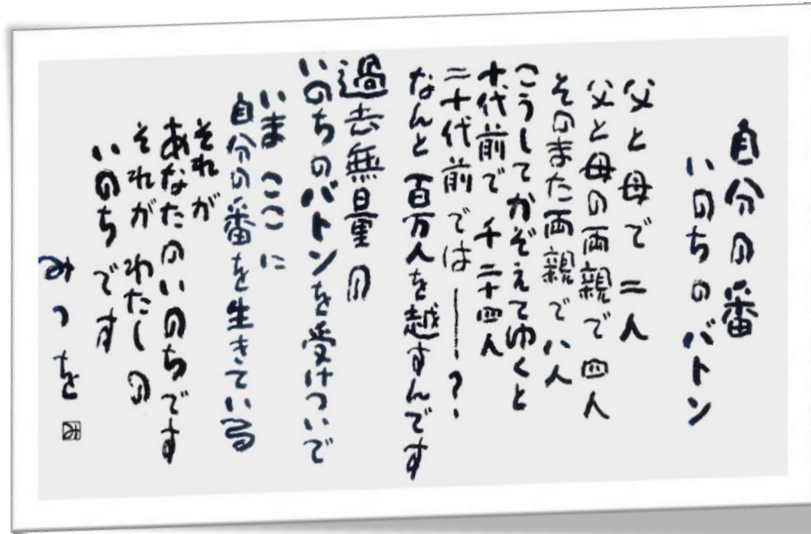 自分の番
いのちのバトン
父と母で二人
父と母の両親で四人
そのまた両親で八人
こうしてかぞえてゆくと
十代前で 千二十四人
二十代前では―――?
なんと百万人を越すんです
過去無量の
いのちのバトンを受けついで
いま ここに
自分の番を生きている
それが
あなたのいのちです
それが わたしの
いのちです
みつを
み